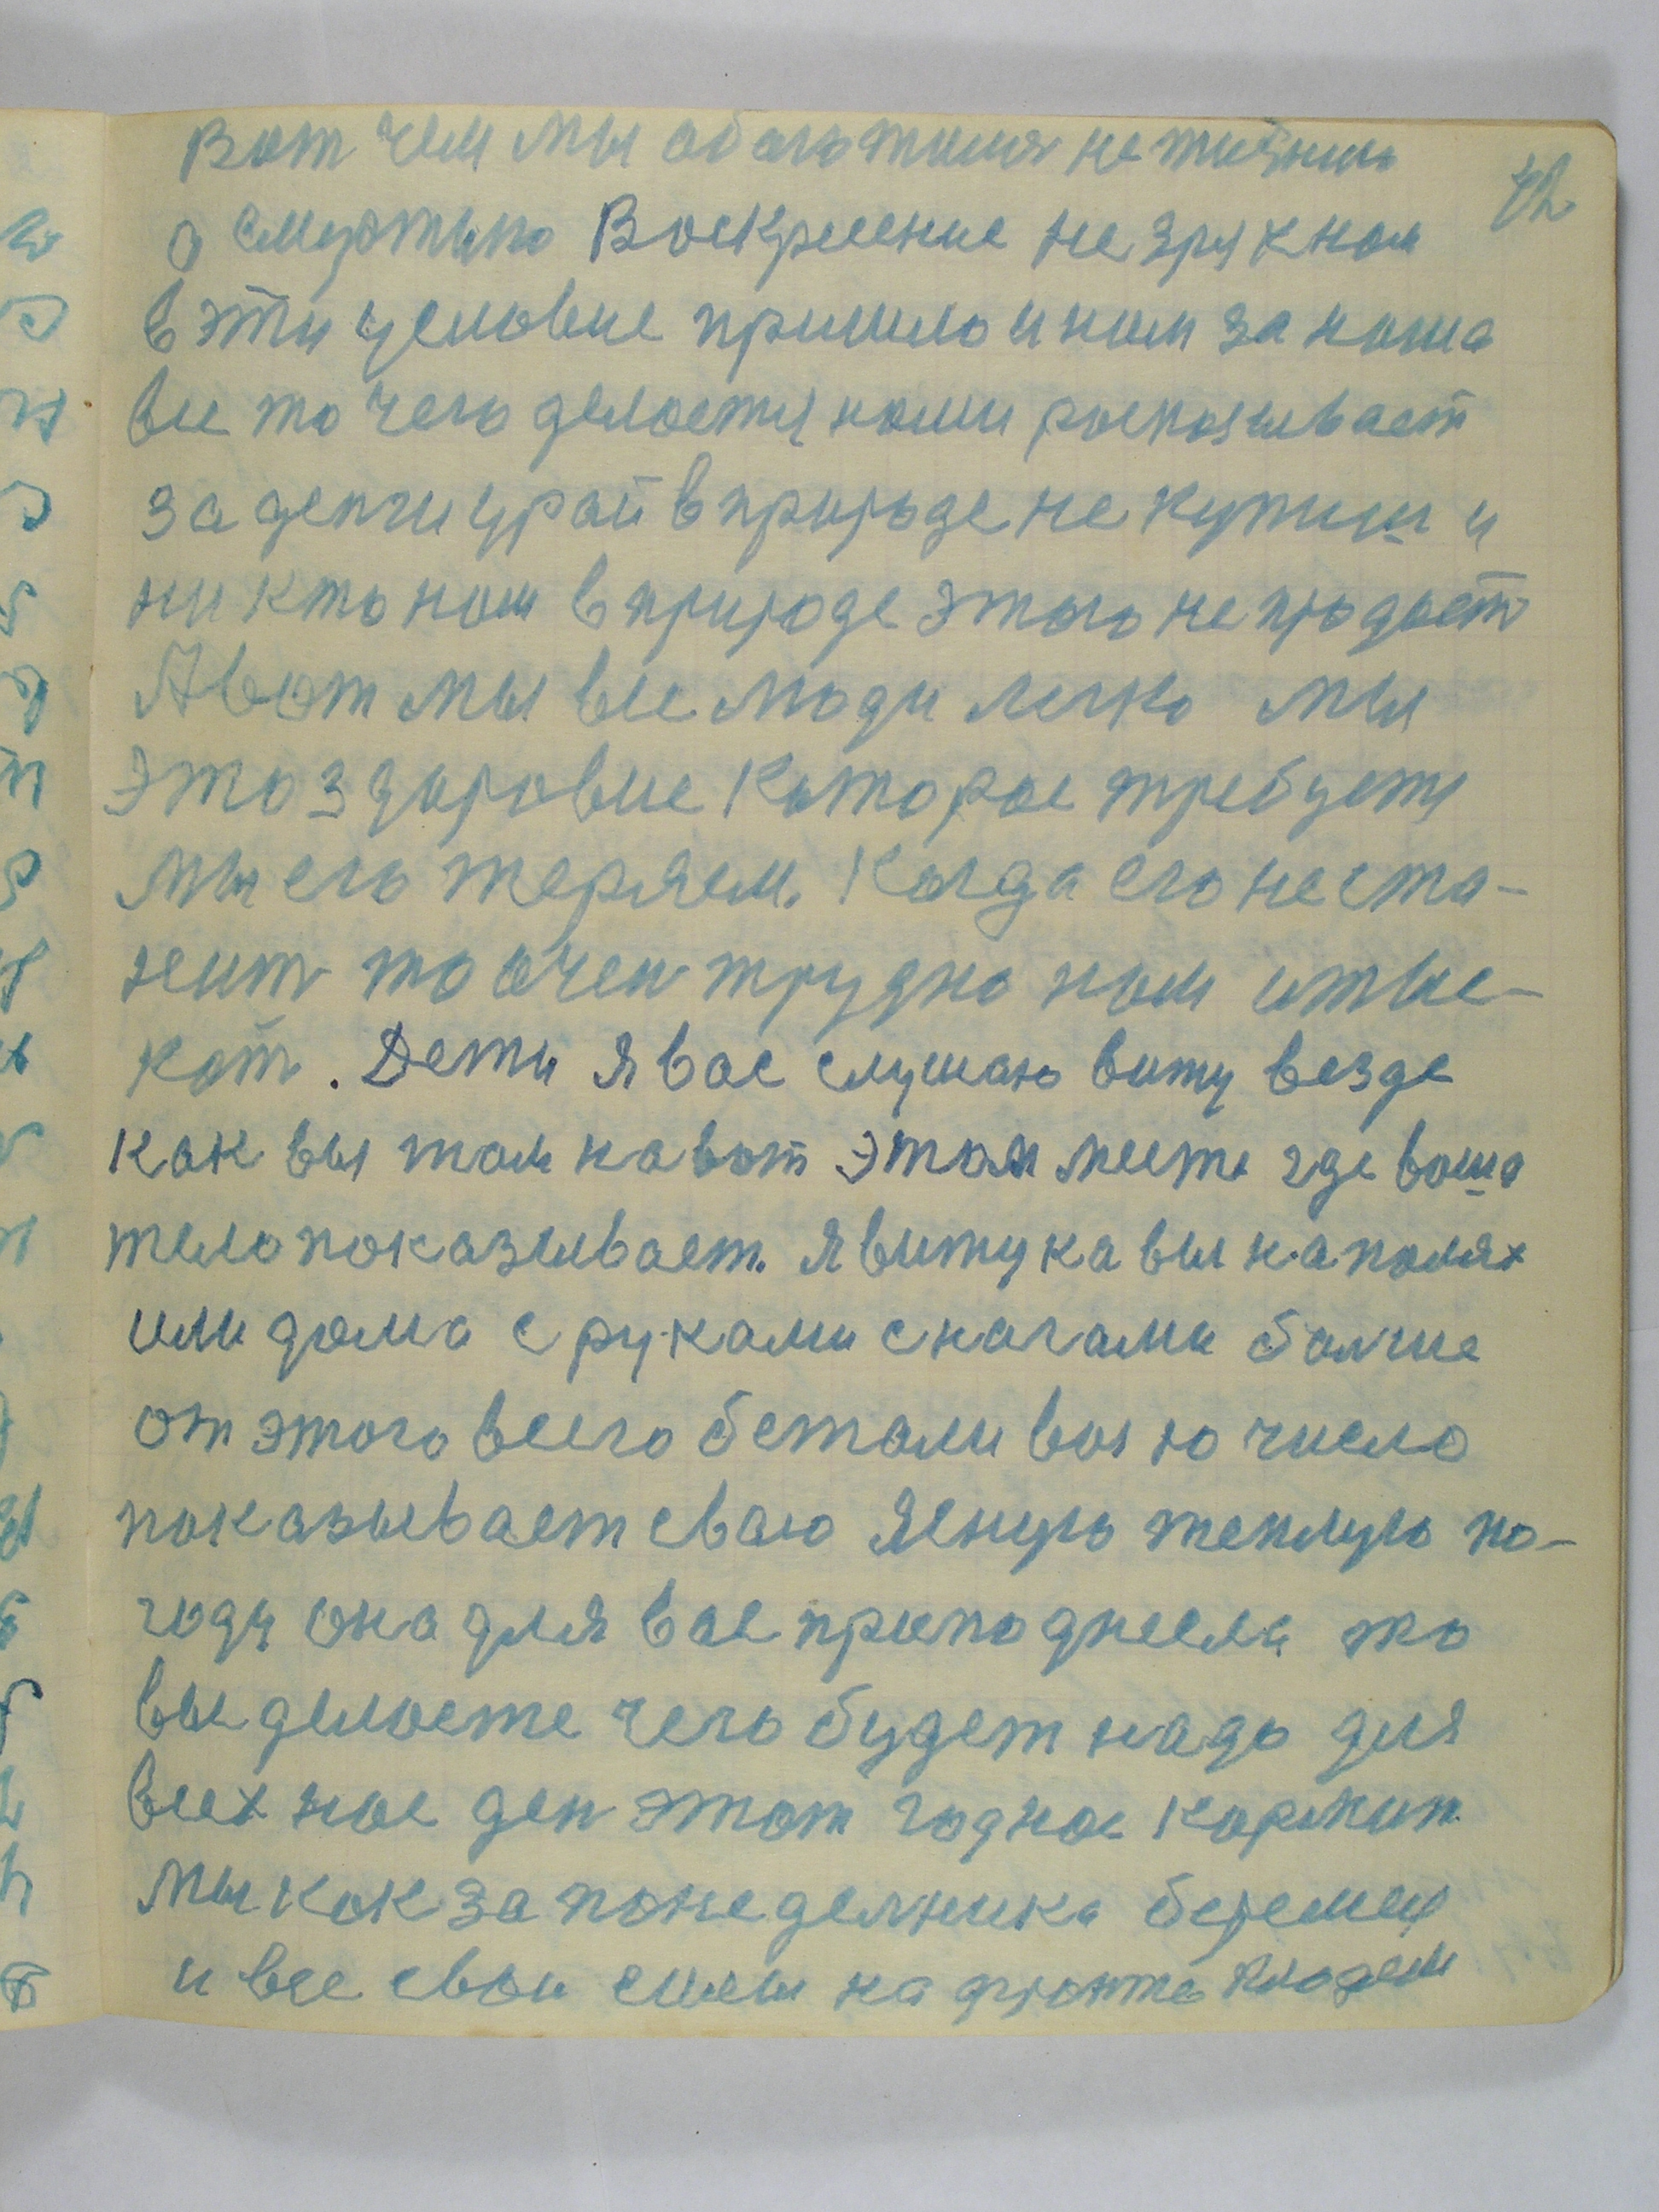 42
Вот чем мы обольтимя не тизнию
а смертию Воскресение не зря к нам
в эти условие пришло и нам за наша
все то чего делается нами росказывает
За денги удрай в природе не купиш и
ни кто нам в природе этого не продаст
А вот мы все люди легко мы
это здоровие которое требуется
мы его теряем. Когда его неста-
нит то очен трудно нам отые-
кат. Дети я вас слушаю вижу везде
как вы там на вот этом месте где ваша
тело показывает. Я вижу ка вы на полях
или дома с руками с ногами более
от этого всего бстали вою число
показывает сваю Ясную теплую по-
году она для вас приподнесла то
вы делаете чего будет надо для
всех нас ден этот год нас кормит
Мы как за понеделника беремся
и все свои силы на фронте кладем